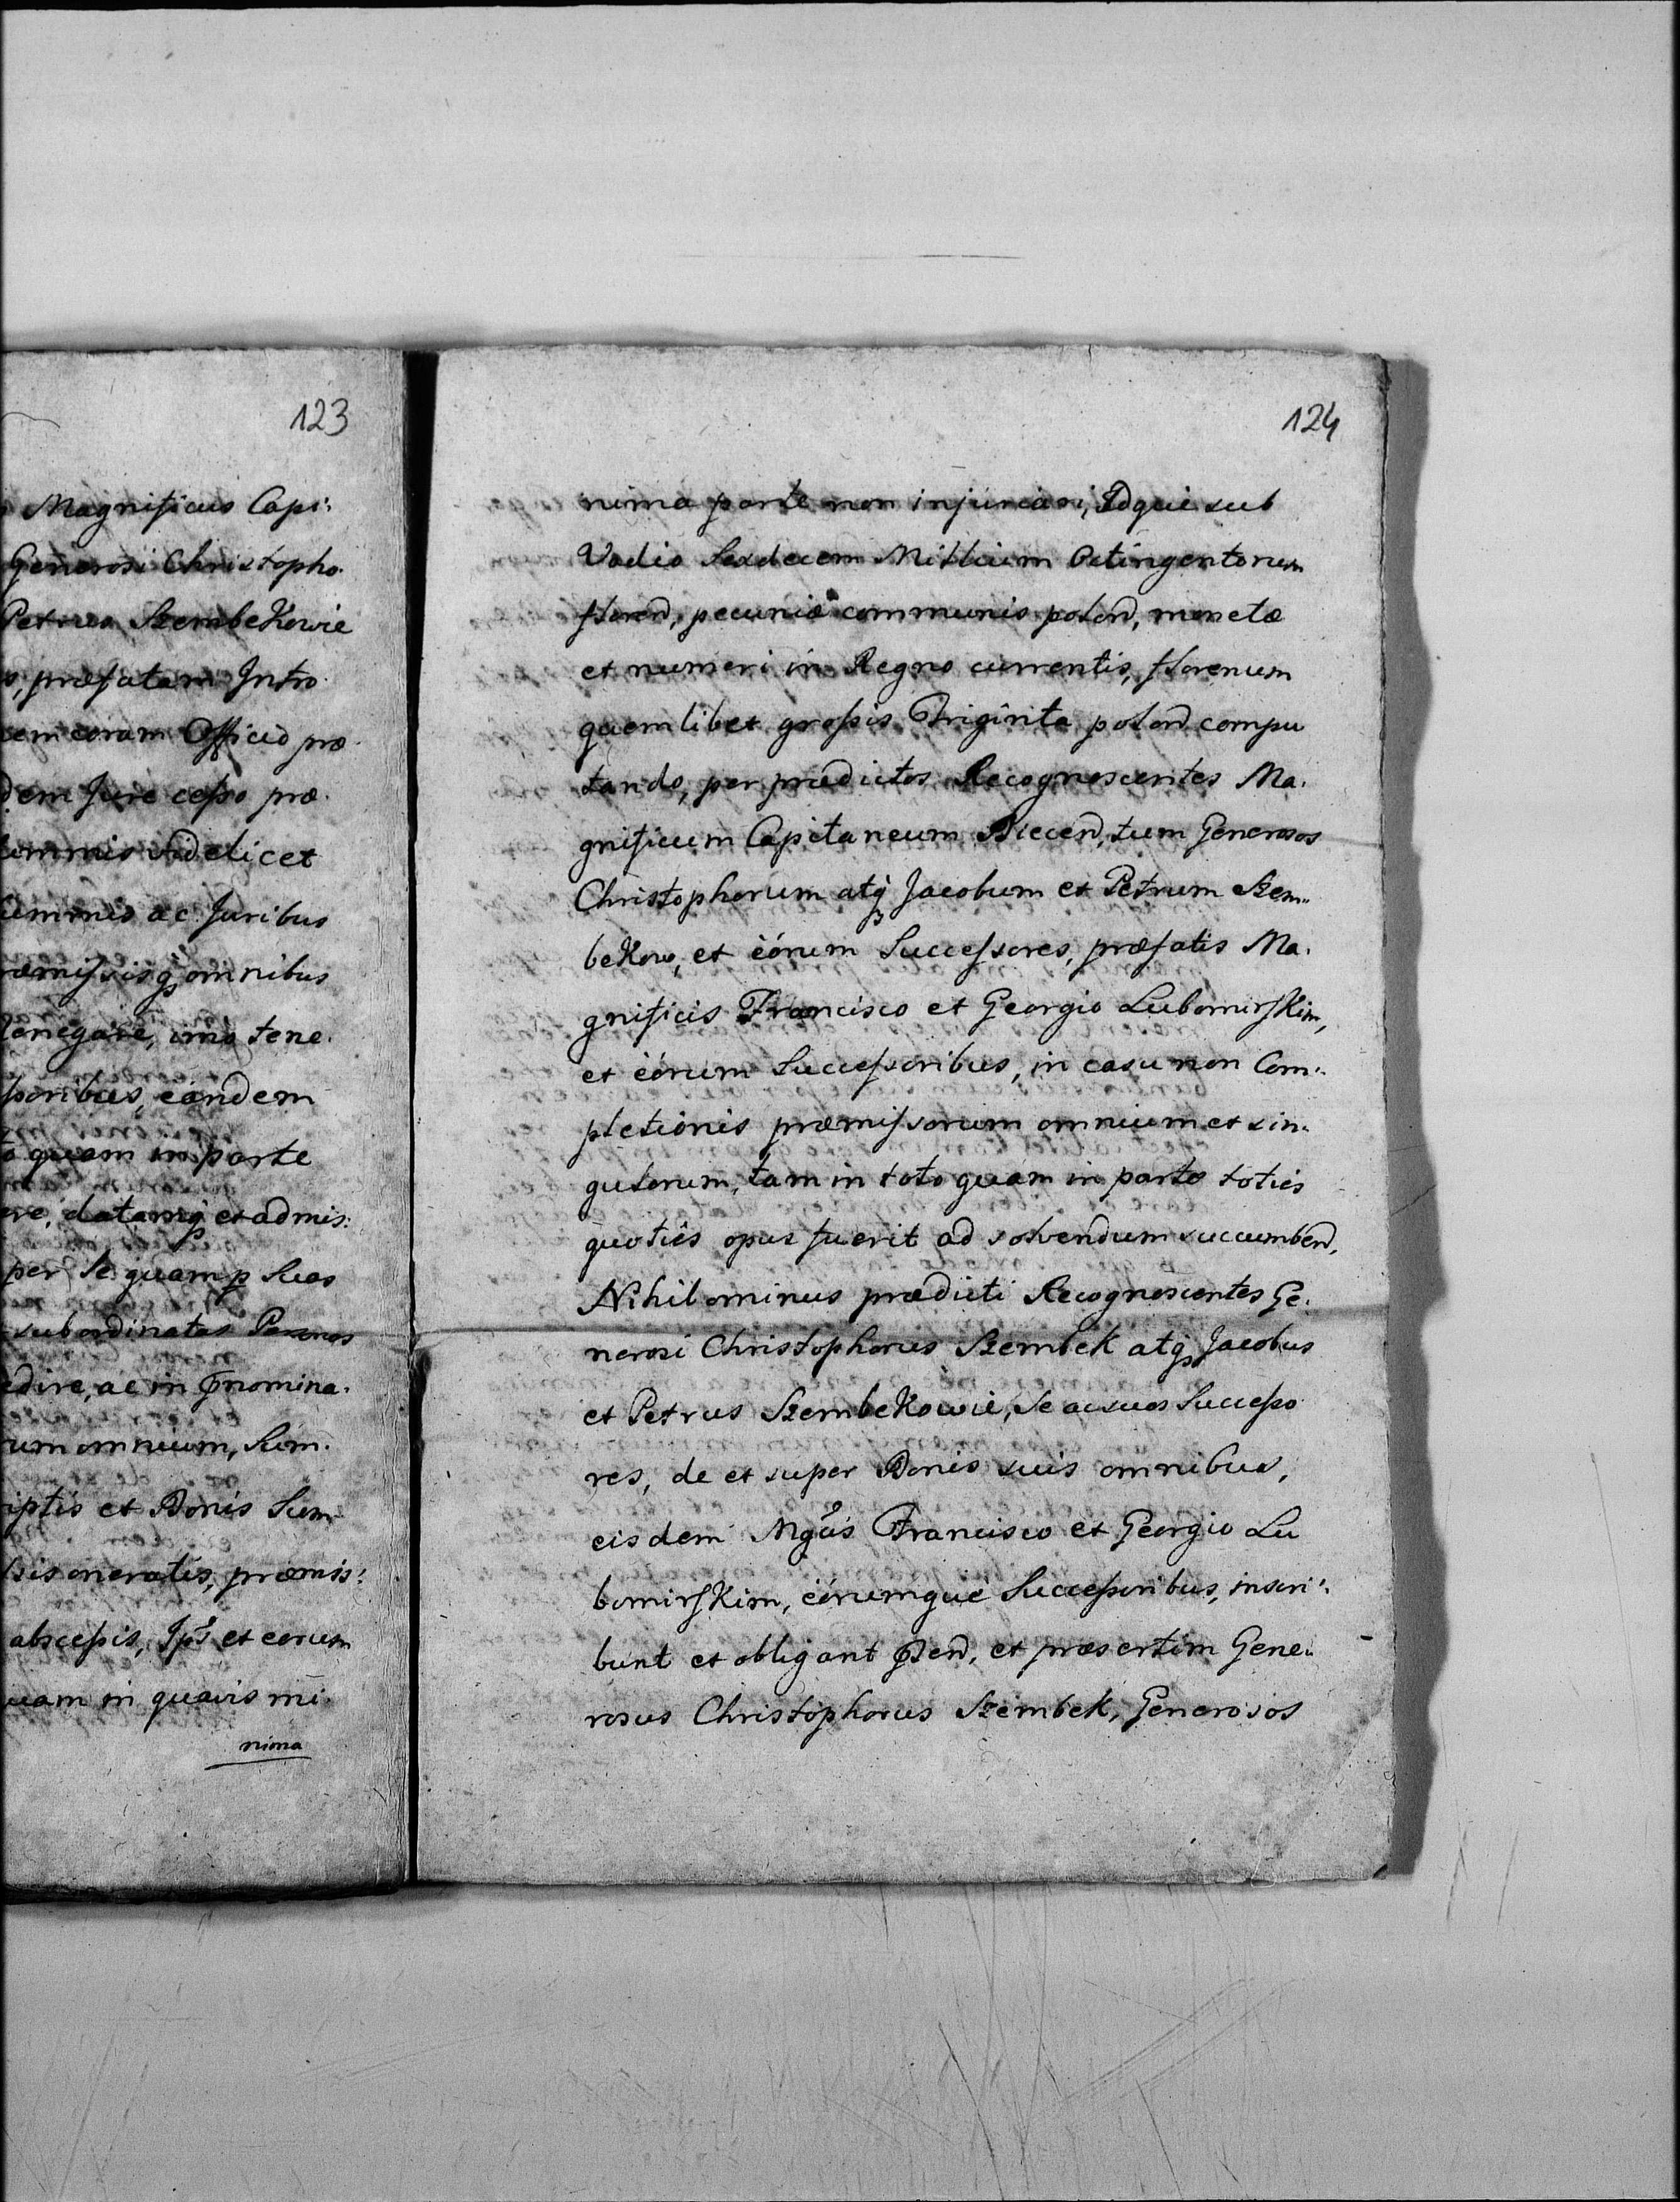 123
Magnificus Capi:
Generosi Christopho.
Petrus SzembeKowie
præfatam Intro.
coram Officio præ.
dem Jure cesso præ.
ummis videlicet
ummis ac Juribus
ræmissisq omnibus
denegare, imo tene.
soribus, eandem
quam in parte
datamq et admis:
per Se quam p Suas
subordinatas Personas
edire, ac in pnomina.
um omnium, Sum.
iptis et Bonis Sum
sis oneratis, præmis:
abscessis, Ips et eorum
uam in quavis mi.
nima
124
nima parte non injuriari, Idque sub
Vadio Sexdecem Millium Octingentorum
floren, pecuniæ communis polon, monetæ
et numeri in Regno currentis, florenum
quemlibet grossis Triginta polon compu
tando, per prædictos Recognoscentes Ma.
gnificum Capitaneum Biecen, tum Generosos
Christophorum atq Jacobum et Petrum Szem..
beKow, et eórum Successores, præfatis Ma.
gnificis Francisco et Georgio LubomirsKim,
et eórum Successoribus, in casu non Com..
pletionis præmissorum omnium et sin.
gulorum, tam in toto quam in parte toties
quoties opus fuerit ad solvendum succumben,
Nihilominus prædicti Recognoscentes Ge.
nerosi Christophorus Szembek atq Jacobus
et Petrus SzembeKowie, Se ac suos Successo
res, de et super Bonis suis omnibus,
eisdem Mgcis Francisco et Georgio Lu
bomirsKim, eórumque Successoribus, inscri:
bunt et obligant Psen, et præsertim Gene..
rosus Christophorus Szembek, Generosos